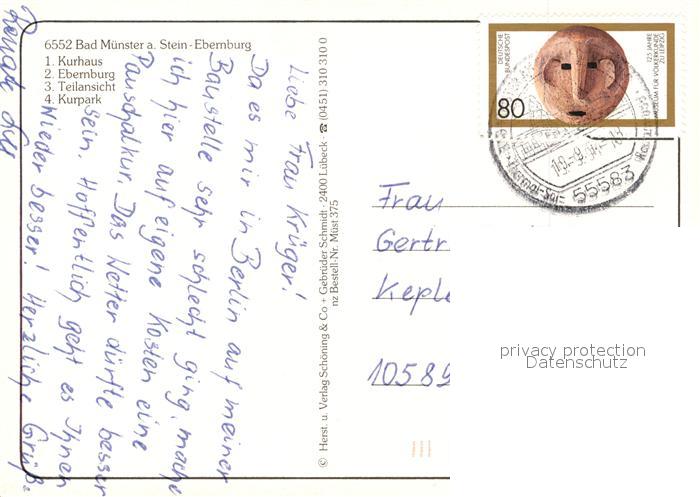 6552 Bad Münster a. Stein - Ebernburg
1. Kurhaus
2. Ebernburg
3. Teilansicht
4. Kurpark
Liebe Frau Krüger!
Da es mir in Berlin auf meiner
Baustelle sehr schlecht ging, mache
ich hier auf eigene Kosten eine
Pauschalkur. Das Wetter dürfte besser
sein. Hoffentlich geht es Ihnen
wieder besser! Herzliche Grüße
Renate
© Herst. u. Verlag Schöning & Co + Gebrüder Schmidt · 2400 Lübeck · ☎ (0451) 310 310 0
nz Bestell-Nr. Müst 375
DEUTSCHE
BUNDESPOST
80
125 JAHRE
MUSEUM FÜR VÖLKERKUNDE
ZU LEIPZIG
55583
Frau
Gertr
Keple
10589
privacy protection
Datenschutz